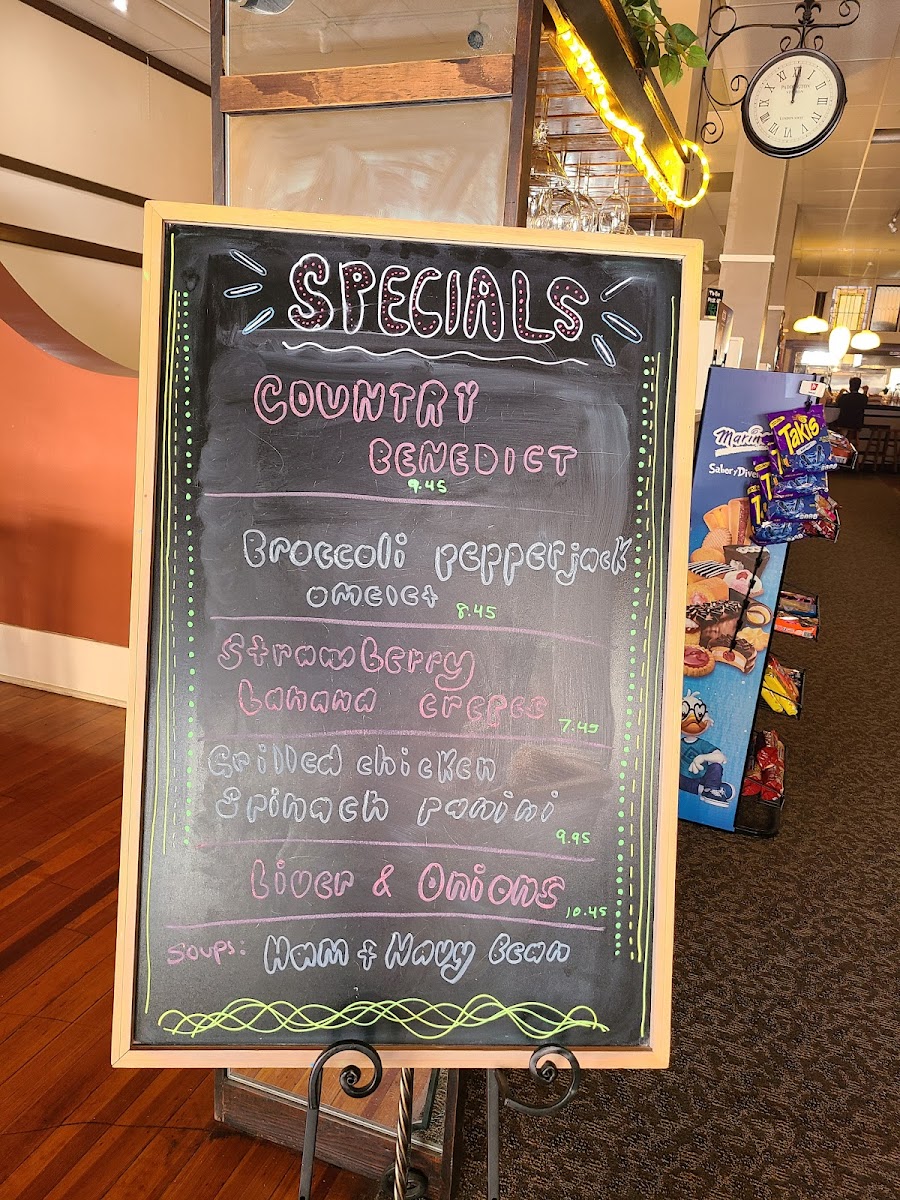 SPECIALS
COUNTRY
BENEDICT
9.45
Broccoli pepperjack
omelet 8.45
Strawberry
banana crepes
7.45
Grilled chicken
Spinach panini
9.95
Liver & Onions
10.45
Soups: Ham + Navy Bean
Takis